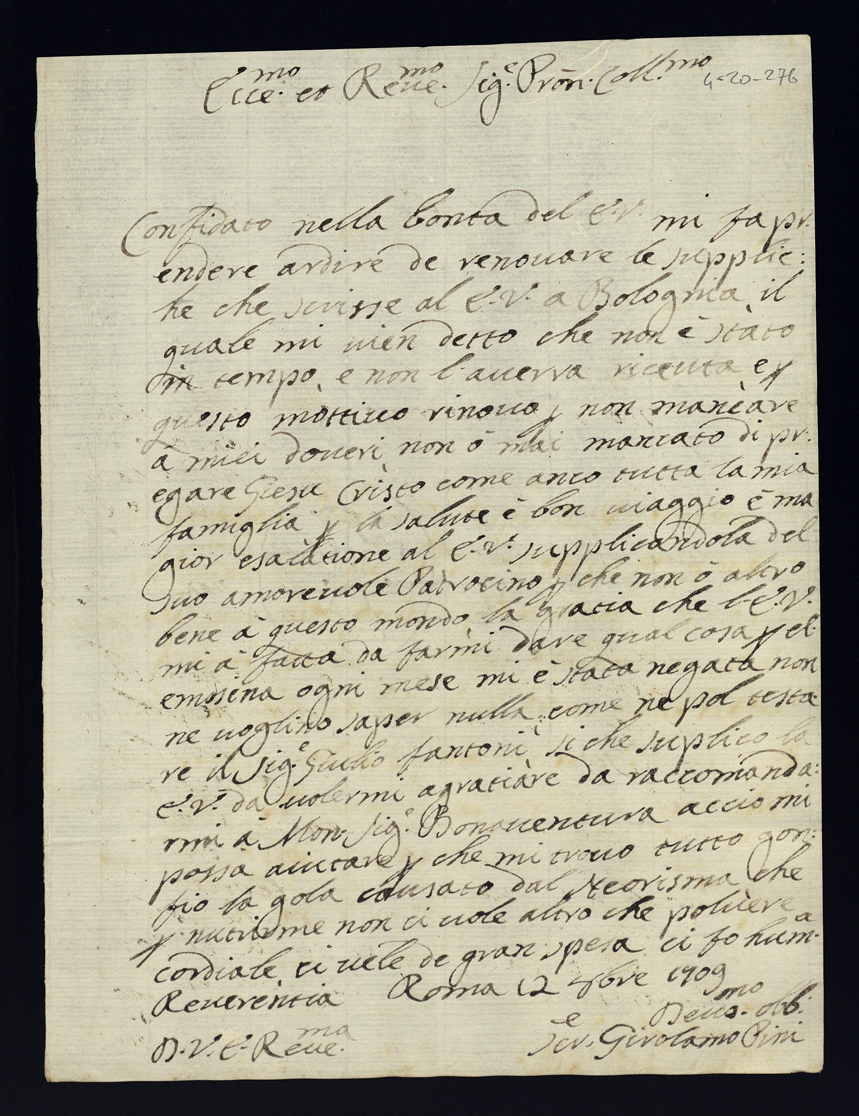 Ecce.mo et Reve.mo Sig.e Prõn. Coll.mo
4-20-276
Confidato nella bonta del E.V. mi fa pr.
endere ardire de renovare le supplic:
he che scrisse al E.V. a Bologna il
quale mi vien detto che non è stàto
in tempo, e non l'averra riceuta e p
questo mottivo rinovo p non mancàre
a miei doveri non ò mai mancato di pr.
egare Giesu Cristo come anco tutta la mia
famiglia p la salute è bon viaggio è ma
gior esaltatione al E.V. supplicandola del
suo amorevole Patrocino p che non ò altro
bene à questo mondo la gratia che l'E.V.
mi à fatta da farmi dare qual cosa p el.
emosina ogni mese mi è stata negata non
ne voglino saper nulla come ne pol testa
re il Sig.e Giulio fantoni si che suplico la
E.V. da volermi agratiàre da raccomanda:
rmi à Mon. Sig.e Bonaventura accio mi
possa aiutare p che mi trovo tutto gon:
fio la gola causato dal Neorisma che
p nutrirme non ci vole altro che polvere
cordiale ci vole de gran spesa ci fo hum.a
Reverentia Roma 12 9bre 1709
D.V.E. Reve.ma
Devs.mo obb.
Ser.e Girolamo Pini